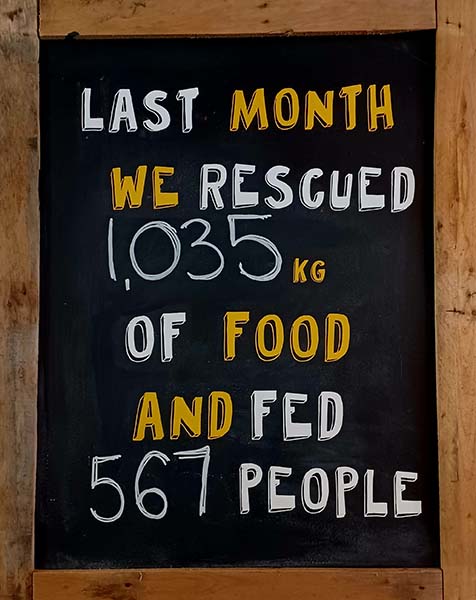 LAST MONTH
WE RESCUED
1,035 KG
OF FOOD
AND FED
567 PEOPLE